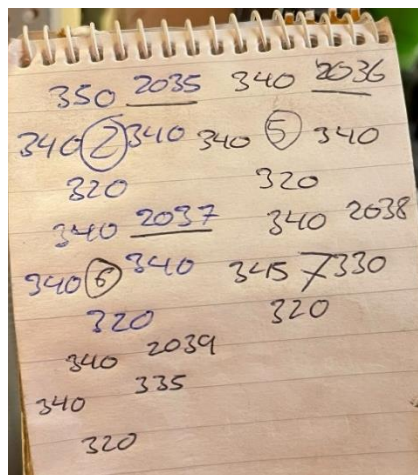 350 2035 340 2036
340 2 340 340 5 340
320 320
340 2037 340 2038
340 6 340 345 7 330
320 320
340 2039
340 335
320